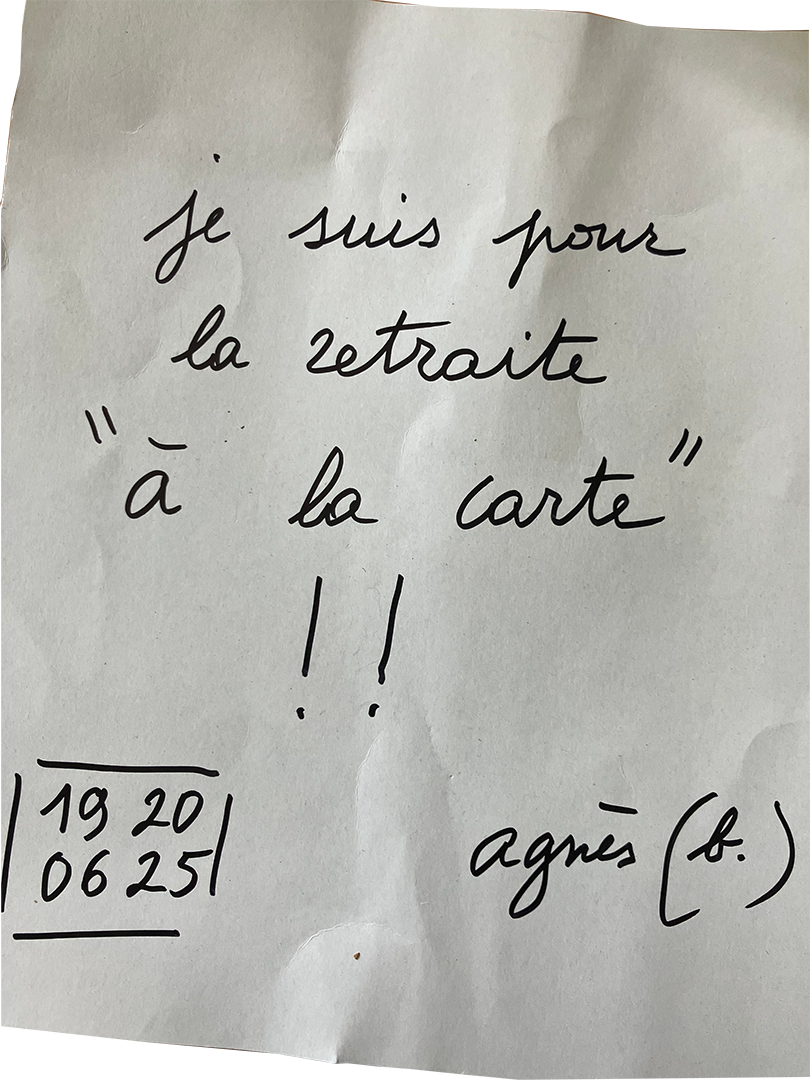 je suis pour
la retraite
"à la carte"
!!
19 20
06 25
agnès (b.)